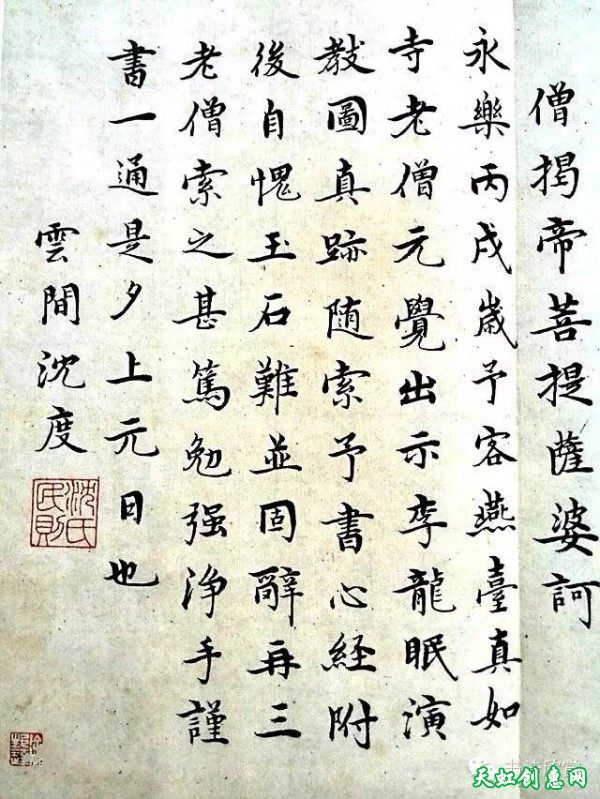 僧揭帝菩提薩婆訶
永樂丙戌歲予客燕臺真如
寺老僧元覺出示李龍眠演
教圖真跡随索予書心経附
後自愧玉石難並固辭再三
老僧索之甚篤勉强淨手謹
書一通是夕上元日也
雲間沈度
沈氏
民則
天虹创意网